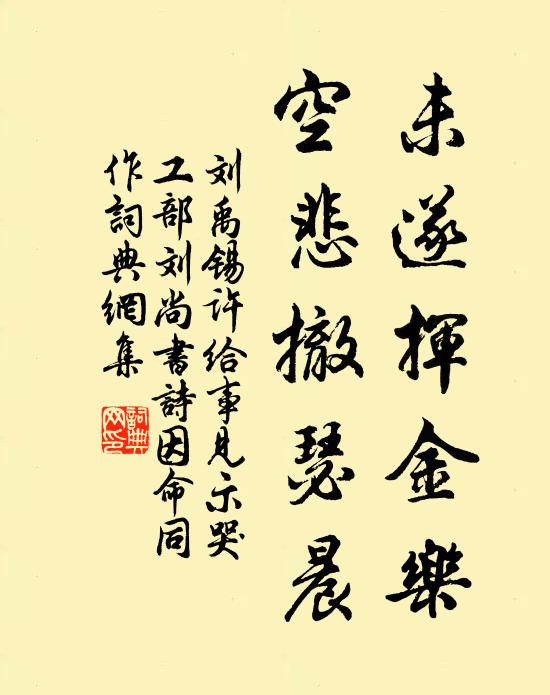 未遂揮金樂
空悲撤瑟晨
刘禹锡许给事見示哭
工部刘尚書詩因命同
作詞典網集
詞典网印